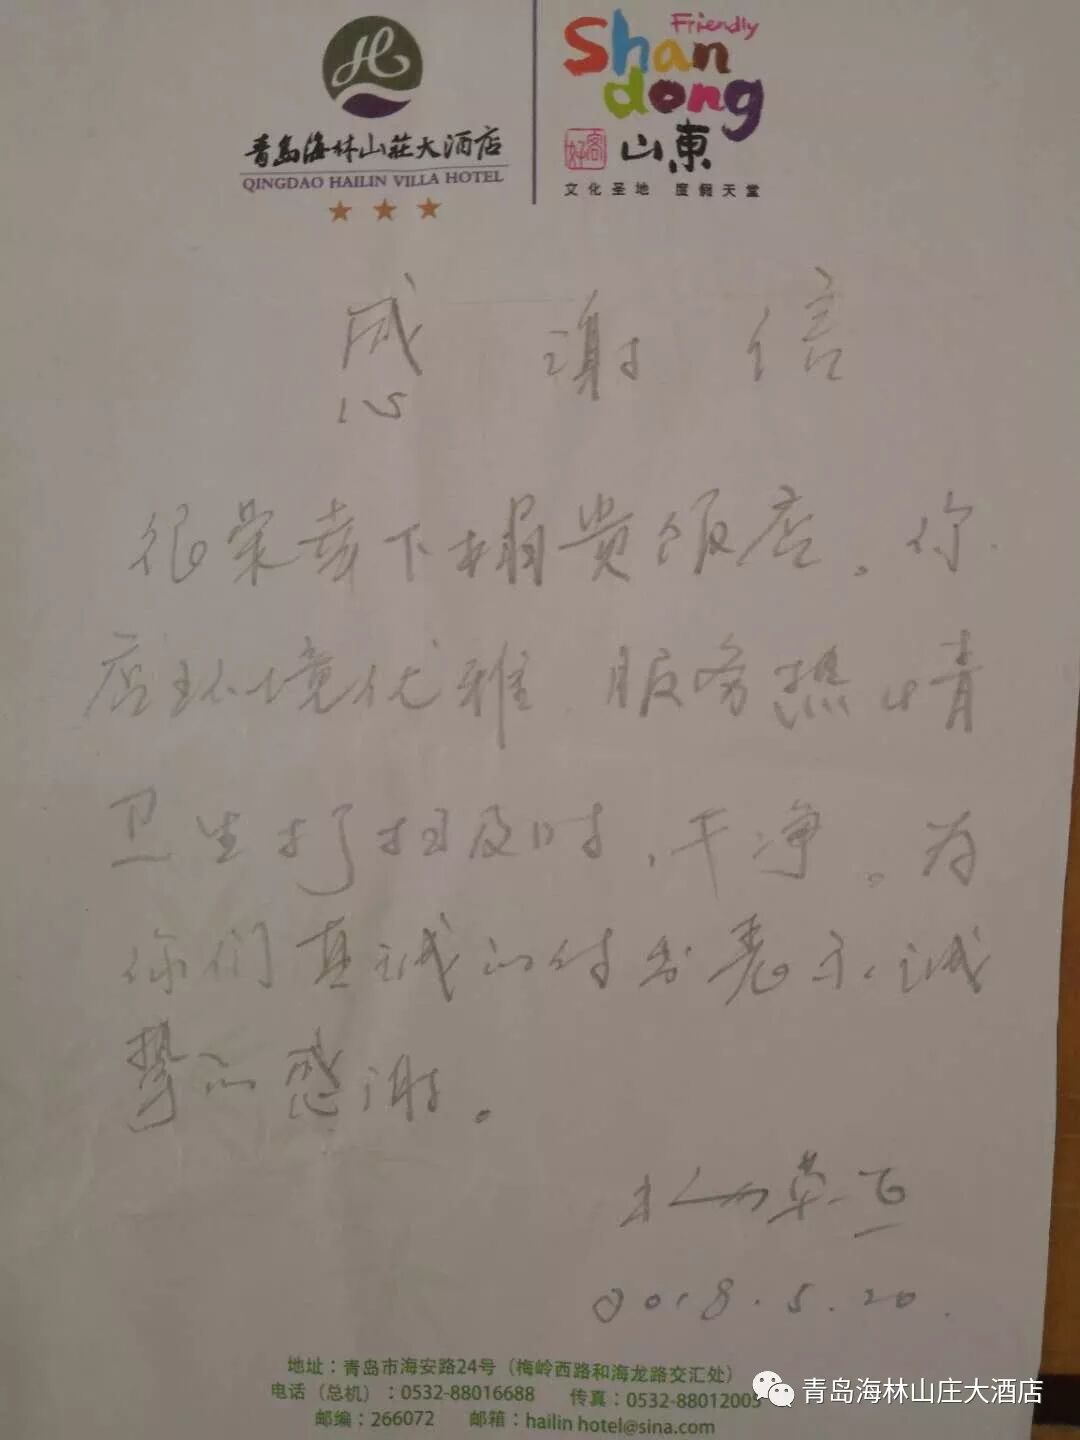 青岛海林山莊大酒店
QINGDAO HAILIN VILLA HOTEL
Friendly
Shan
dong
好客
山東
文化圣地 度假天堂
感谢信
很荣幸下榻贵饭店。你
店环境优雅、服务热情
卫生打扫及时、干净。为
你们真诚的付出表示诚
挚的感谢。
2018.5.20.
地址：青岛市海安路24号（梅岭西路和海龙路交汇处）
电话（总机）：0532-88016688 传真：0532-88012005
邮编：266072 邮箱：hailin hotel@sina.com
青岛海林山庄大酒店